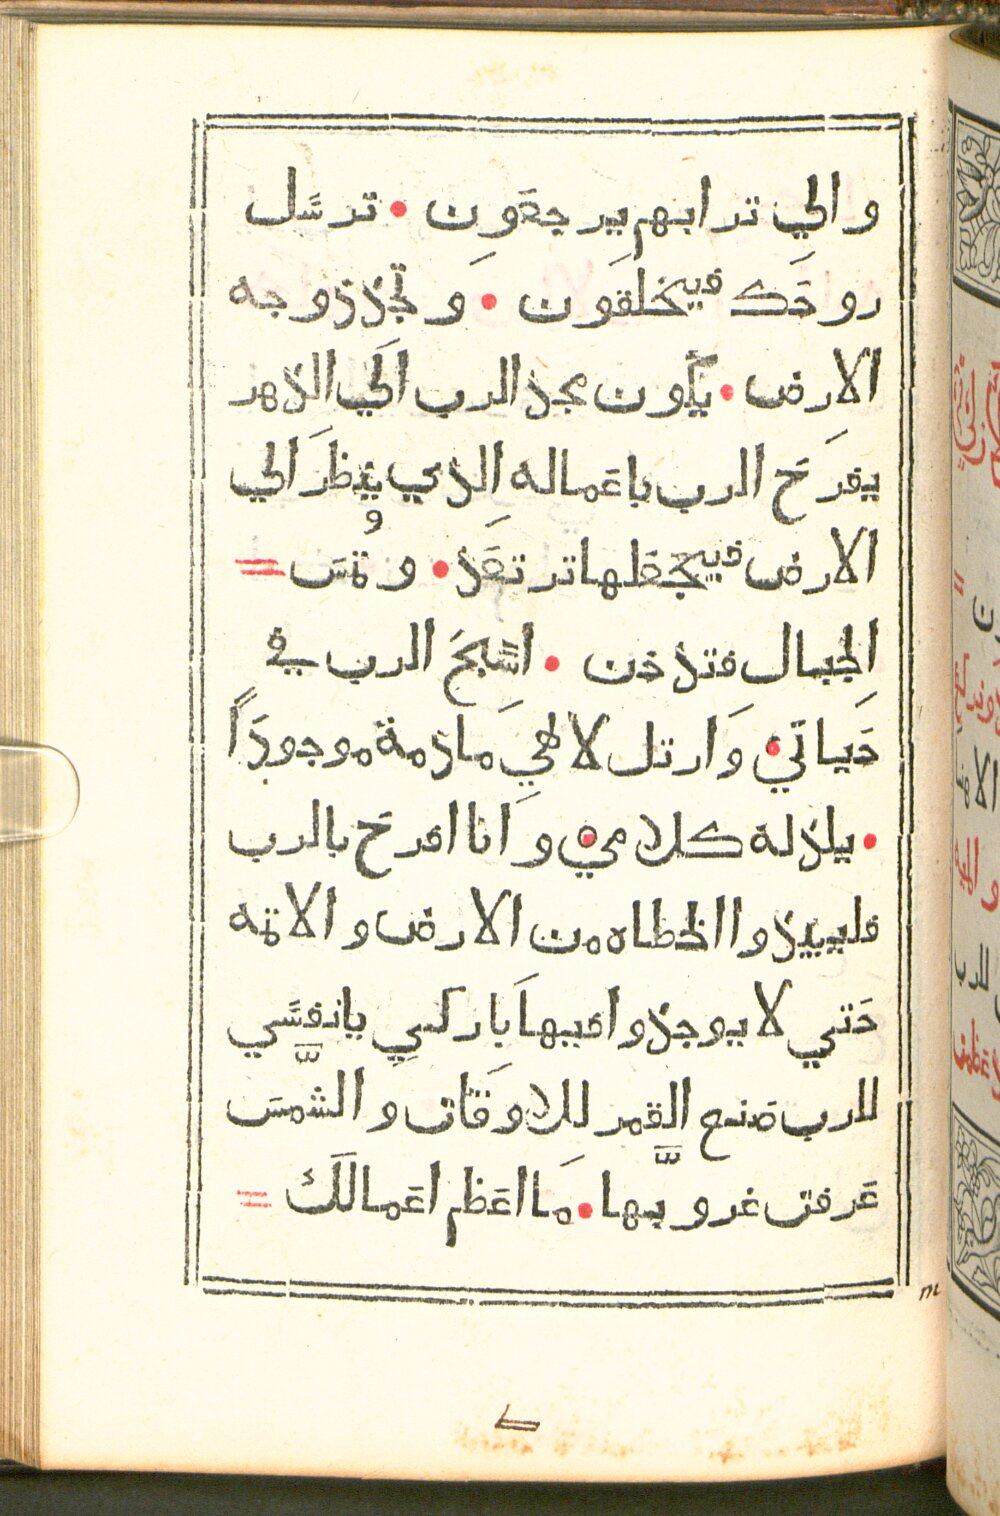 والي ترابهم يرجعون • ترسل
روحك فيخلقون • وتجدد وجه
الارض • يكون مجد الرب الي الدهر
يفرح الرب باعماله الذي ينظر الي
الارض فيجعلها ترتعد • وتمس =
الجبال فتدخن • اسبح الرب في
حياتي • وارتل لالهي ما دمة موجودًا
• يلذ له كلامي • وانا افرح بالرب
فليبيدوا الخطاه من الارض والاتمه
حتي لا يوجدوا فيها باركي يا نفسي
للرب صنع القمر للاوقات والشمس
عرفت غروبها • ما اعظم اعمالك =